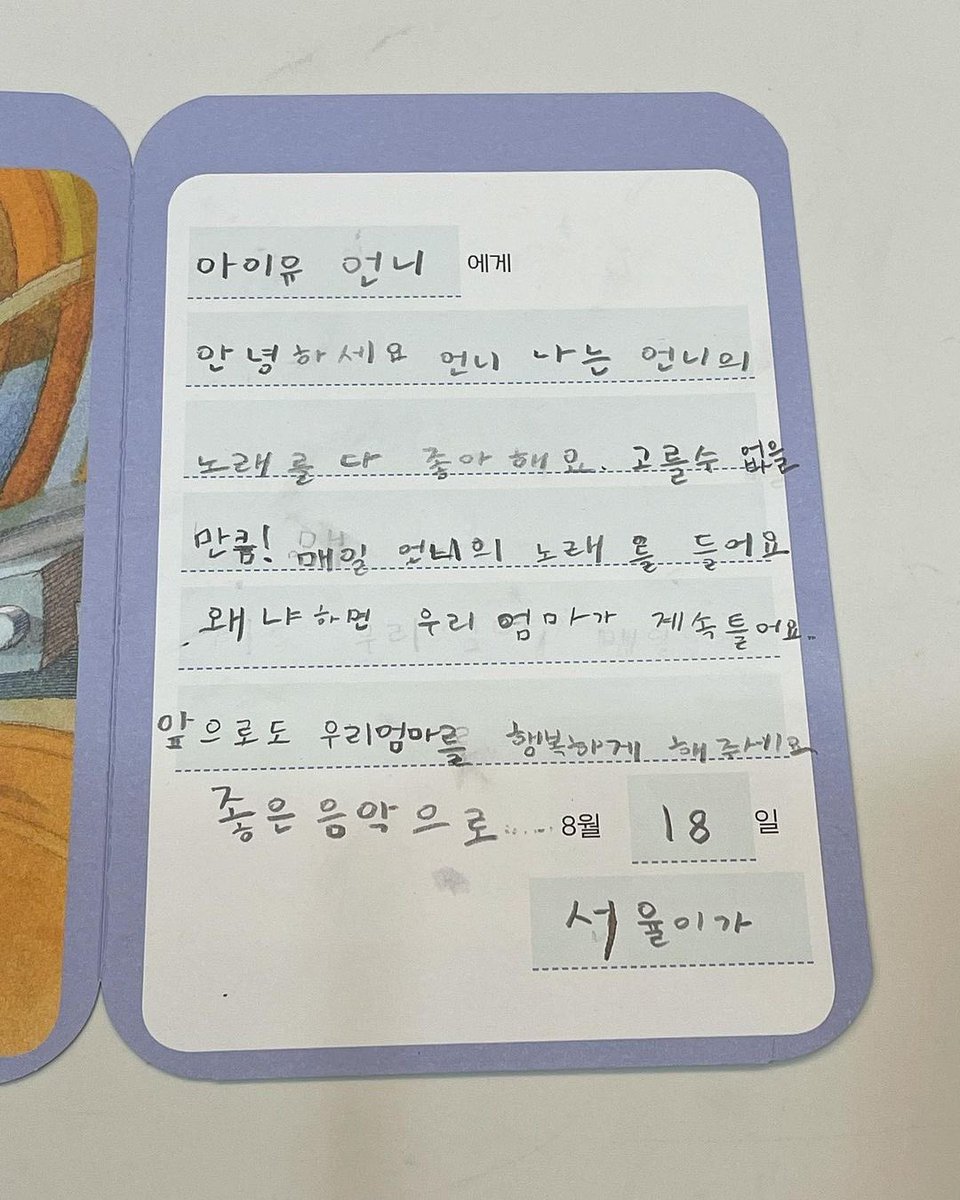 아이유 언니 에게
안녕하세요 언니 나는 언니의
노래를 다 좋아해요. 고를수 없을
만큼! 매일 언니의 노래를 들어요
왜냐하면 우리 엄마가 계속틀어요..
앞으로도 우리엄마를 행복하게 해주세요
좋은 음악으로...... 8월 18 일
서율이가